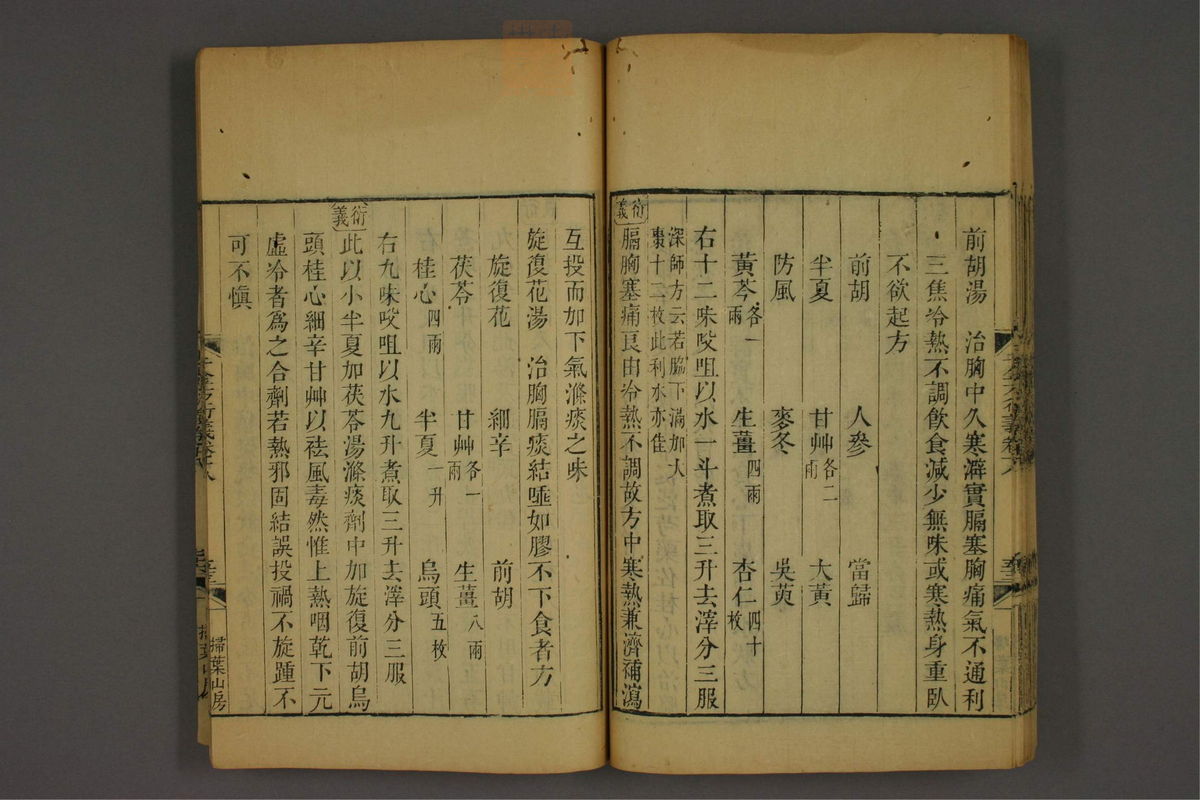 前胡湯　治胸中久寒澼實膈塞胸痛氣不通利
三焦冷熱不調飲食減少無味或寒熱身重臥
不欲起方
前胡　人參　當歸
半夏　甘艸各二兩　大黃
防風　麥冬　吳萸
黃芩各一兩　生薑四兩　杏仁四十枚
右十二味㕮咀以水一斗煮取三升去滓分三服
深師方云若脇下滿加大
棗十二枚此利水亦佳
衍義
膈胸塞痛良由冷熱不調故方中寒熱兼濟補瀉
互投而加下氣滌痰之味
旋復花湯　治胸膈痰結唾如膠不下食者方
旋復花　細辛　前胡
茯苓　甘艸各一兩　生薑八兩
桂心四兩　半夏一升　烏頭五枚
右九味㕮咀以水九升煮取三升去滓分三服
衍義
此以小半夏加茯苓湯滌痰劑中加旋復前胡烏
頭桂心細辛甘艸以祛風毒然惟上熱咽乾下元
虛冷者為之合劑若熱邪固結誤投禍不旋踵不
可不慎
掃葉山房